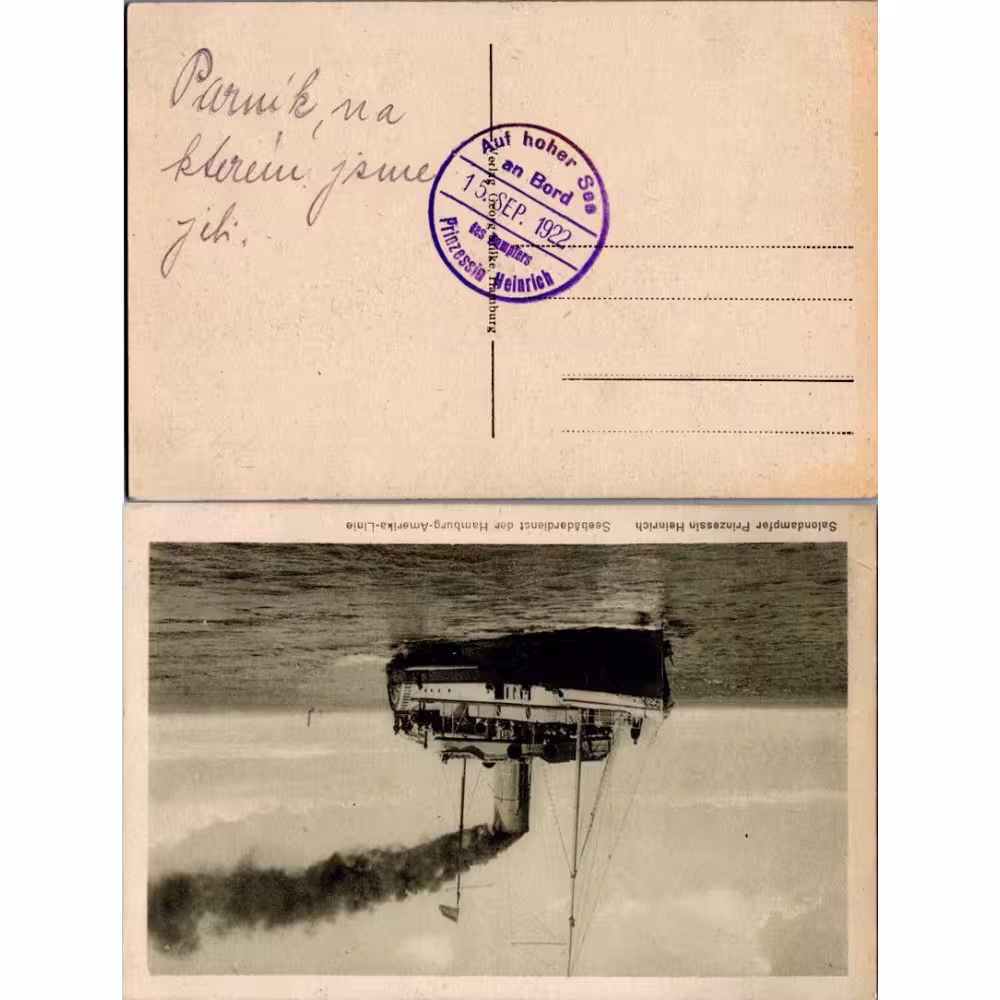 Parník, na
kterém jsme
jeli.
Auf hoher See
an Bord
15. SEP. 1922
des Dampfers
Prinzessin Heinrich
Verlag Georg Hamburg
Salondampfer Prinzessin Heinrich Seebäderdienst der Hamburg-Amerika-Linie